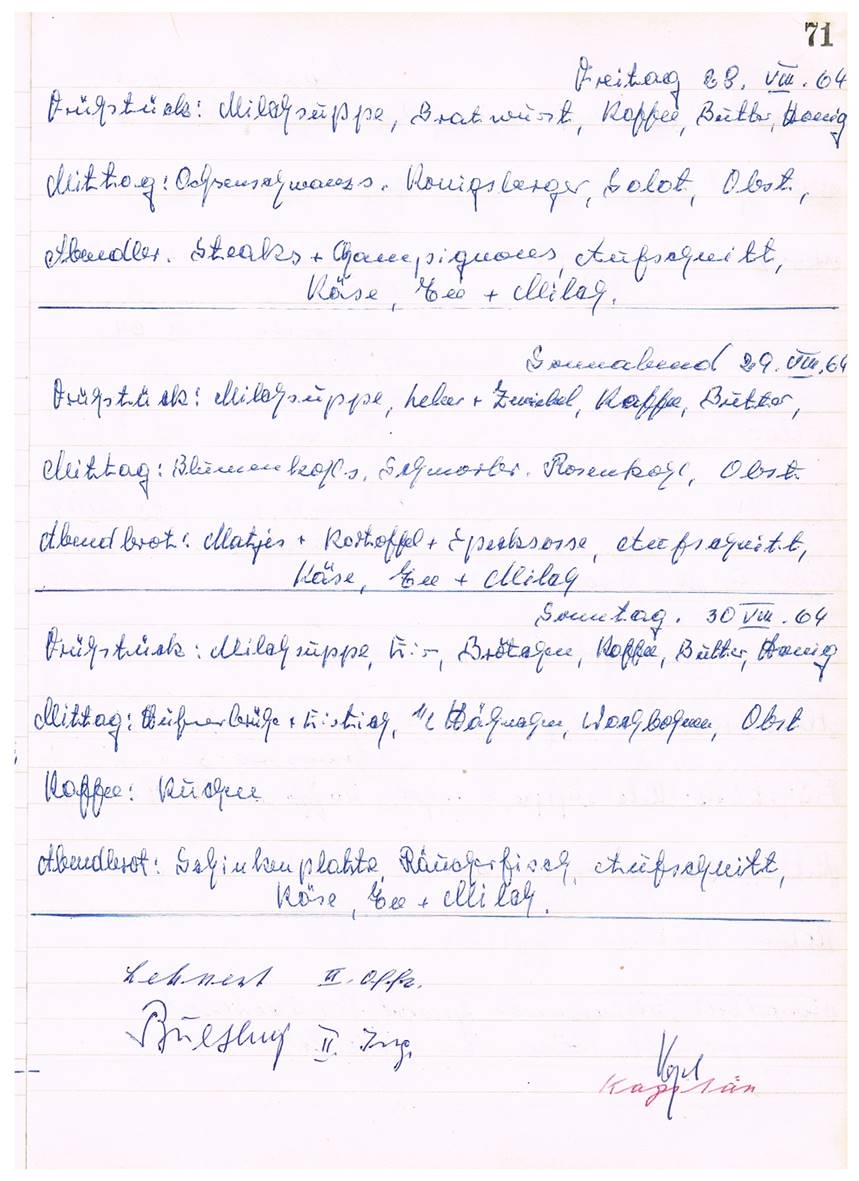 71
Freitag 28. VIII. 64
Frühstück: Milchsuppe, Bratwurst, Kaffee, Butter, Honig
Mittag: Ochsenschwanzs. Königsberger, Salat, Obst,
Abendbr. Steaks + Champignons, Aufschnitt,
Käse, Tee + Milch.
Sonnabend 29. VIII. 64
Frühstück: Milchsuppe, Leber + Zwiebel, Kaffee, Butter,
Mittag: Blumenkohls. Schmorbr. Rosenkohl, Obst.
Abendbrot: Matjes + Kartoffel + Specksosse, Aufschnitt,
Käse, Tee + Milch
Sonntag. 30 VIII. 64
Frühstück: Milchsuppe, Brötchen, Kaffee, Butter, Honig
Mittag: Hühnerbrühe + Eistich, 1/2 Hähnchen, Wachbohnen, Obst
Kaffee: Kuchen
Abendbrot: Schinkenplatte, Räucherfisch, Aufschnitt,
Käse, Tee + Milch.
Lehnert II. Offz.
II. Ing.
Vogel
Kapitän